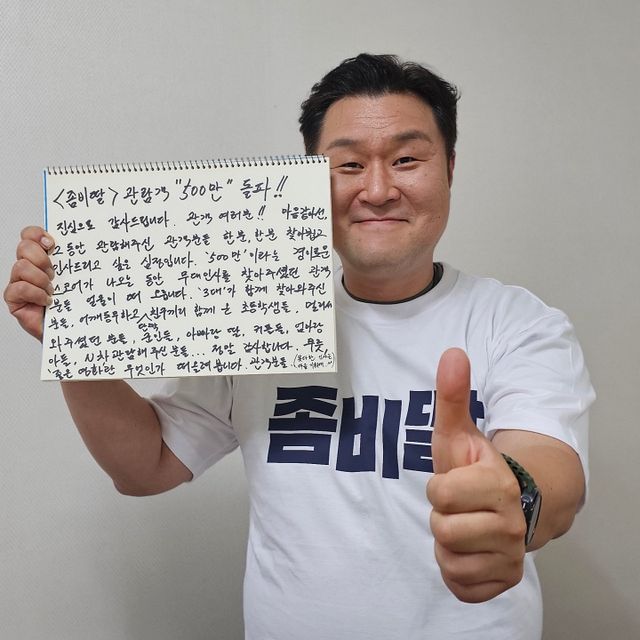 <좀비딸> 관람객 "500만" 돌파!!
진심으로 감사드립니다. 관객 여러분!! 마음같아선,
그동안 관람해주신 관객분들 한분, 한분 찾아뵙고
인사드리고 싶은 심정입니다. '500만'이라는 경이로운
스코어가 나오는 동안 무대인사를 찾아주셨던 관객
분들 얼굴이 떠 오릅니다. '3대'가 함께 찾아와주신
분들, 어깨동무하고 친구끼리 함께 온 초등학생들, 멀리서
와주셨던 분들, 군인들, 아빠랑 딸, 커플들, 엄마랑
아들, N차 관람해 주신 분들... 정말 감사합니다. 무릇,
'좋은 영화란' 무엇인가 떠올려 봅니다. 관객분들
좀비딸